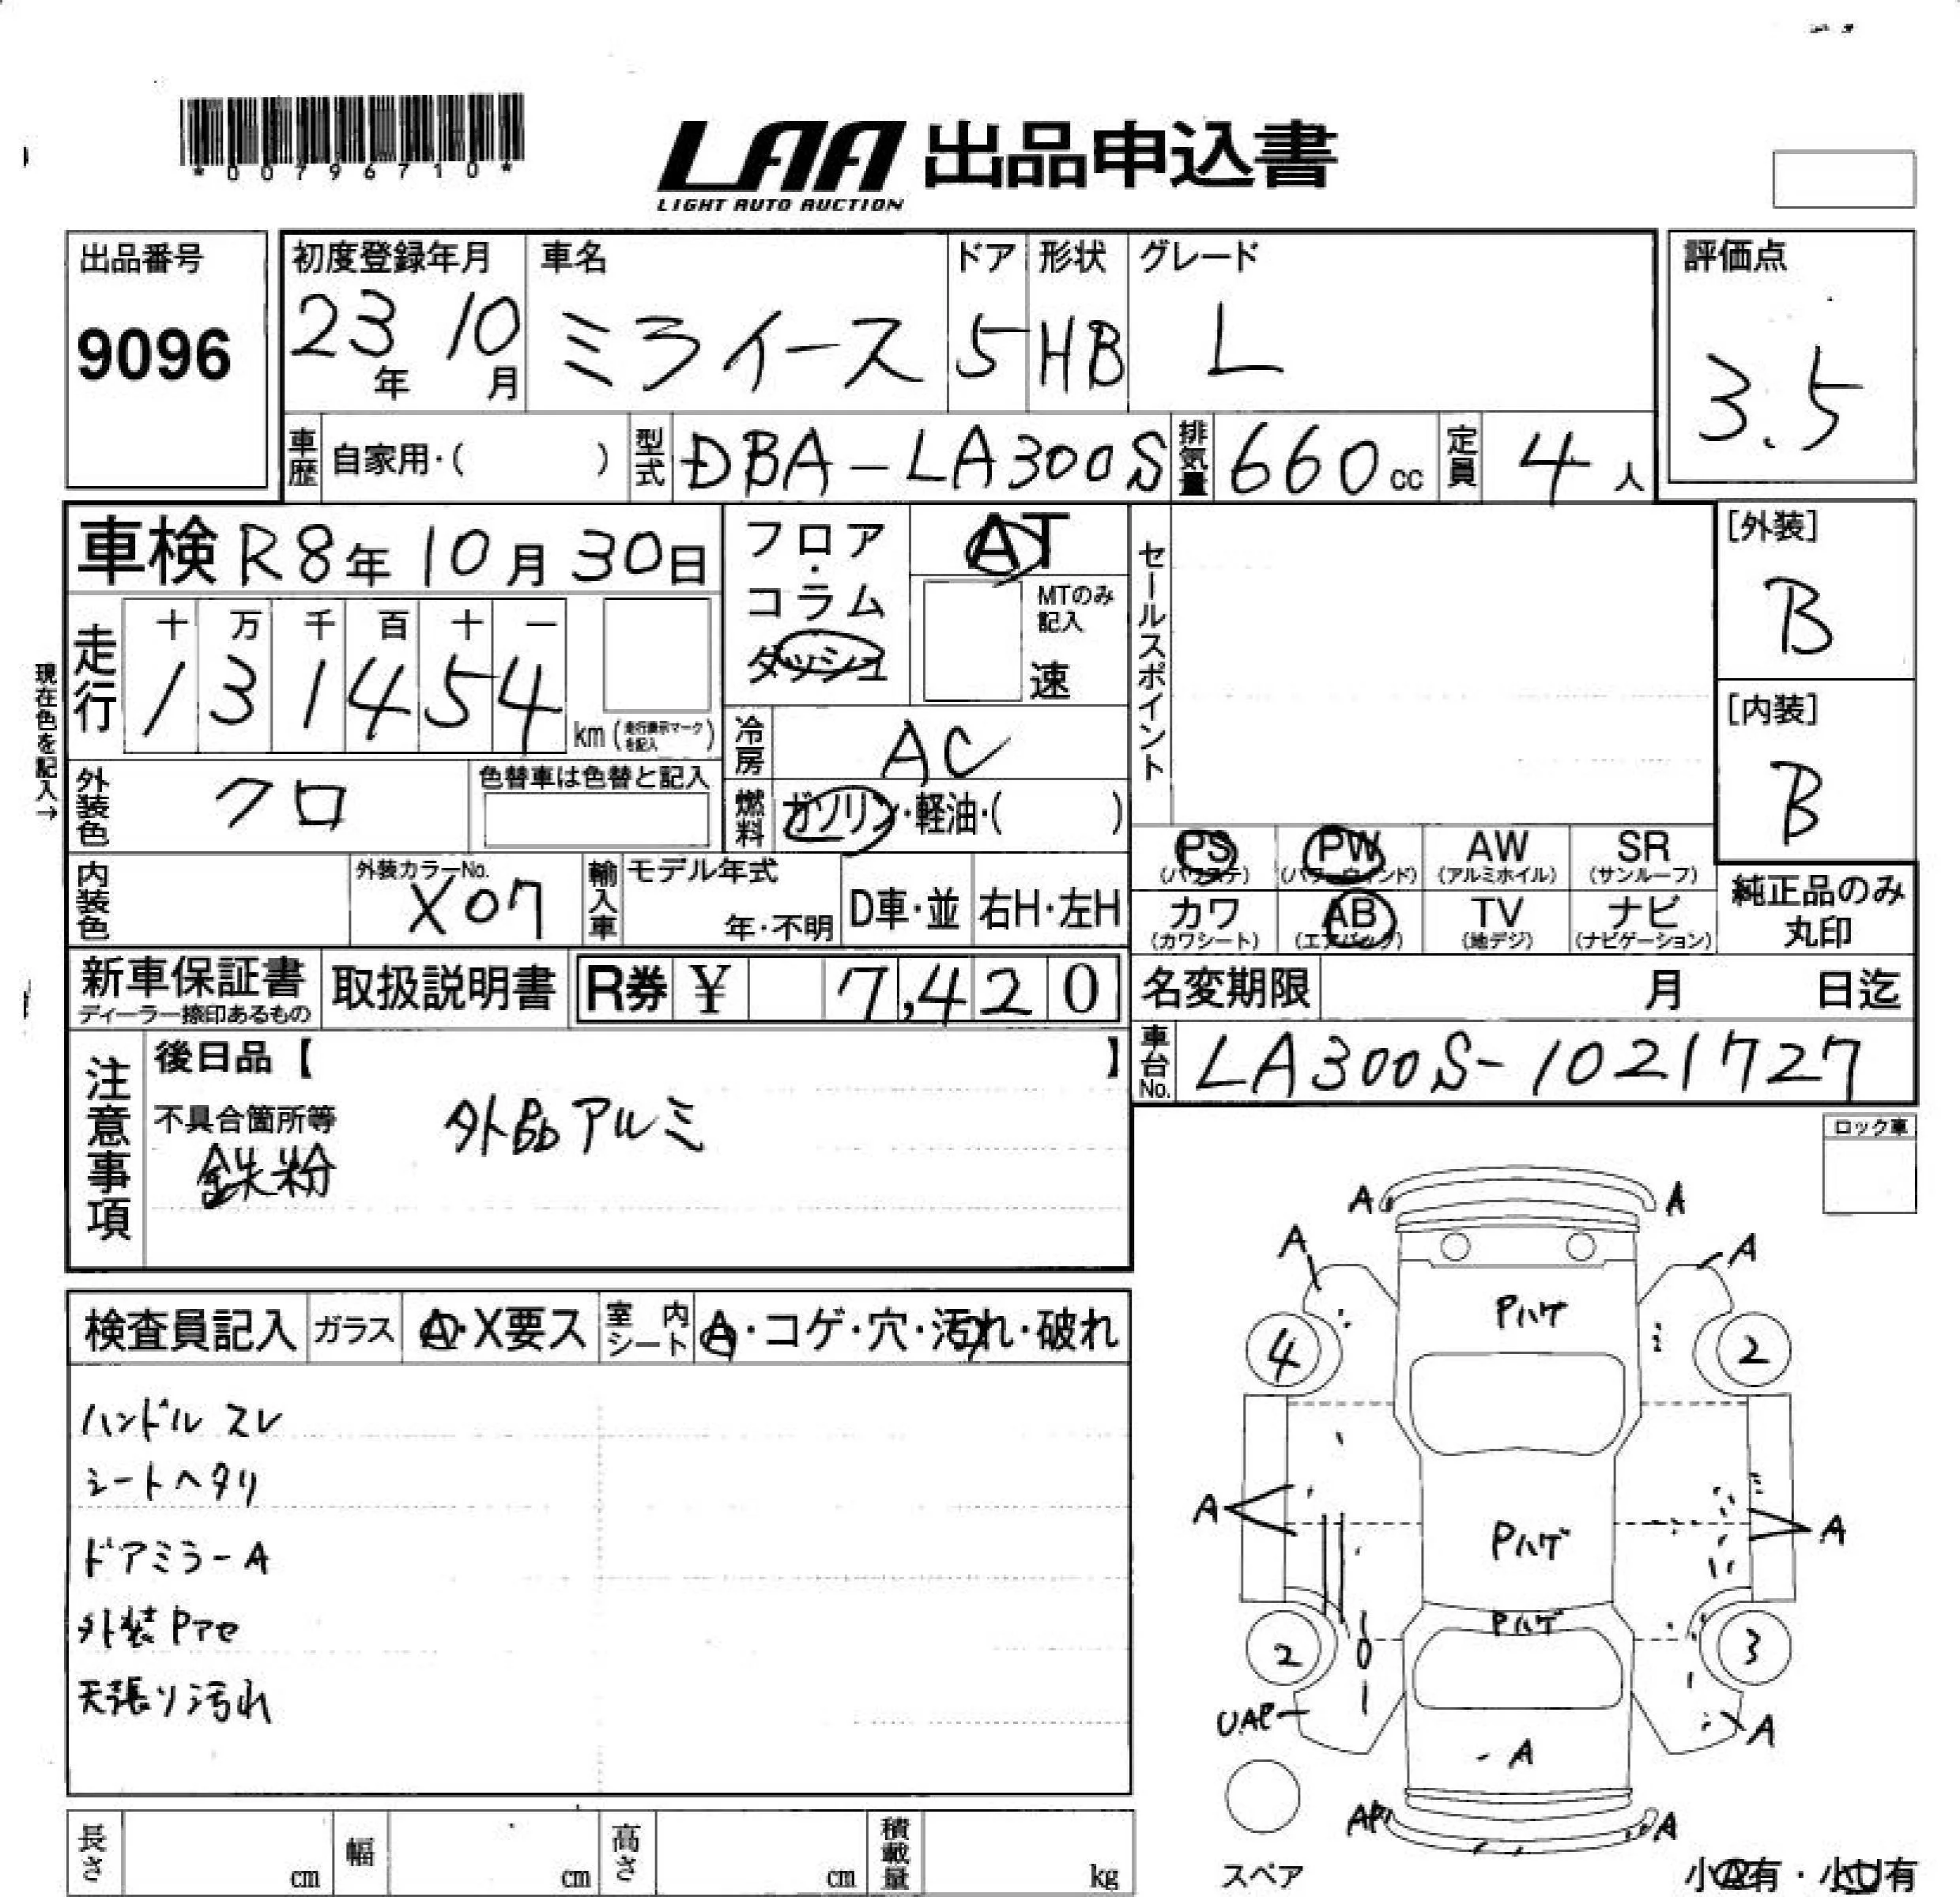 *00796710*
LAA 出品申込書
LIGHT AUTO AUCTION
出品番号
9096
初度登録年月
23年 10月
車名
ミライース
ドア
5
形状
HB
グレード
L
評価点
3.5
車歴 自家用・( )
型式 DBA-LA300S
排気量 660cc
定員 4人
車検 R8年 10月 30日
フロア・コラム
ダッシュ
AT
MTのみ記入
速
セールスポイント
[外装]
B
[内装]
B
現在色を記入→
走行
十 万 千 百 十 一
1 3 1 4 5 4
km (走行表示マークを記入)
冷房 AC
燃料 ガソリン・軽油・( )
外装色 クロ
色替車は色替と記入
内装色
外装カラーNo.
X07
輸入車 モデル年式
年・不明
D車・並
右H・左H
PS (パワステ)
PW (パワーウィンド)
AW (アルミホイル)
SR (サンルーフ)
カワ (カワシート)
AB (エアバック)
TV (地デジ)
ナビ (ナビゲーション)
純正品のみ丸印
新車保証書
ディーラー捺印あるもの
取扱説明書
R券 ¥ 7,420
名変期限 月 日迄
車台No. LA300S-1021727
注意事項
後日品【 】
不具合箇所等
外品アルミ
鉄粉
ロック車
検査員記入
ガラス A・X要ス
室内シート A・コゲ・穴・汚れ・破れ
ハンドルスレ
シートヘタリ
ドアミラーA
外装Pアセ
天張り汚れ
A A
A A
Pハゲ
4 2
A Pハゲ A
Pハゲ
2 3
UAP A
A
AP A
スペア
長さ cm
幅 cm
高さ cm
積載量 kg
小A有・小U有